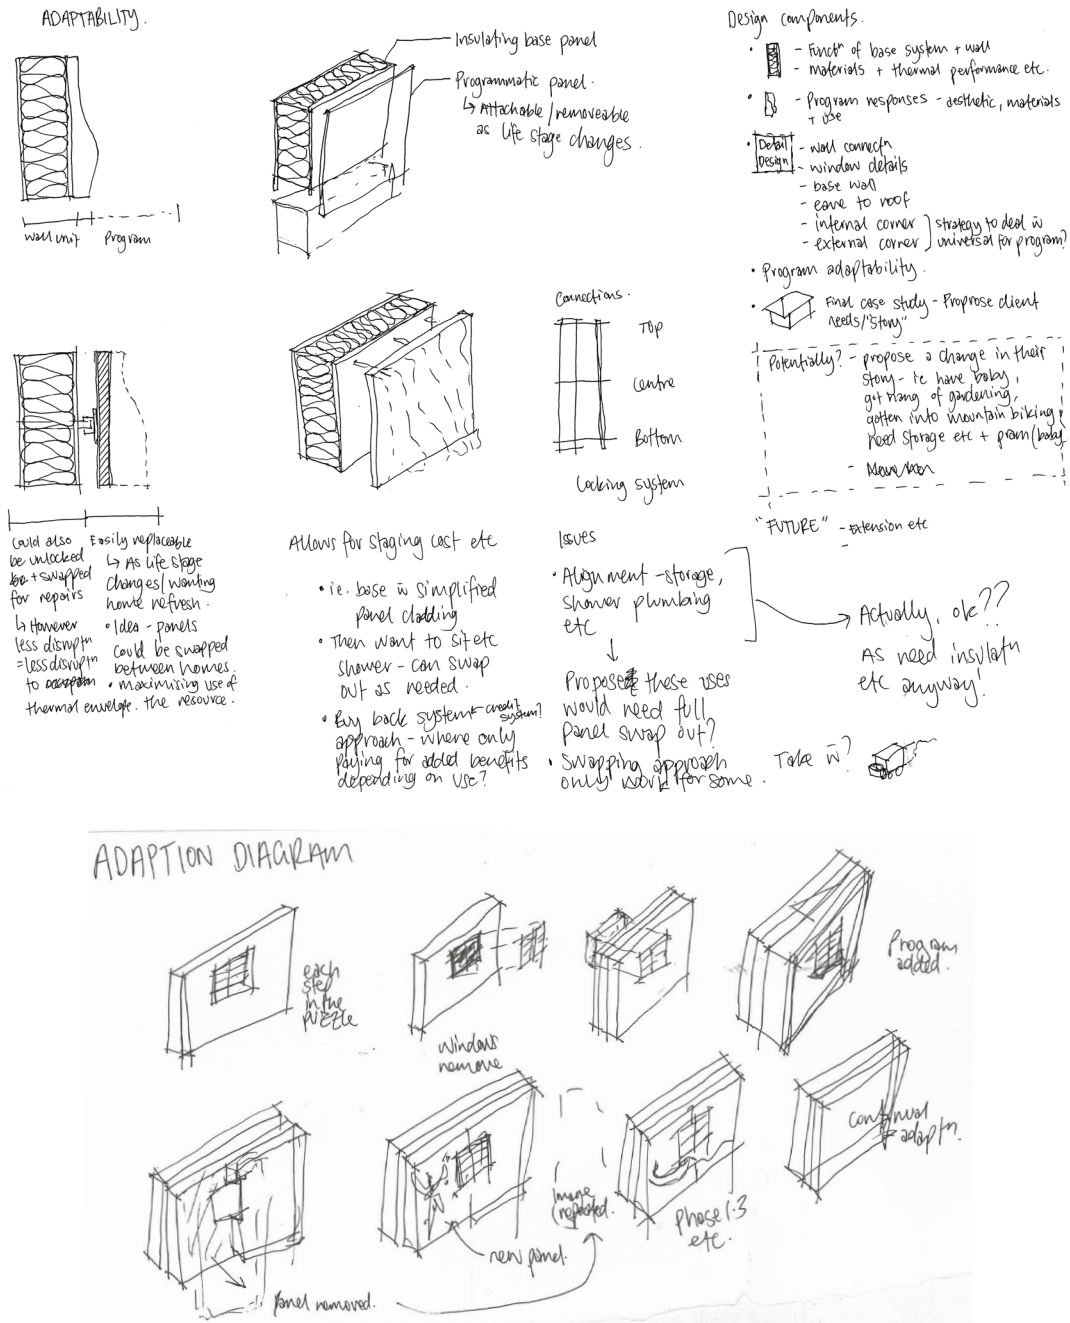 ADAPTABILITY.
wall unit
program
Insulating base panel
Programmatic panel.
↳ Attachable/removeable
as life stage changes.
Design components.
• - Functn of base system + wall
- materials + thermal performance etc.
• - Program responses - aesthetic, materials
+ use
• Detail
Design
- wall connectn
- window details
- base wall
- eave to roof
- internal corner
- external corner
strategy to deal w̄
universal for program?
• Program adaptability.
• Final case study - Proprose client
needs/"story"
Potentially? - propose a change in their
story - ie have baby,
got hang of gardening,
gotten into mountain biking,
need storage etc + pram (baby
"FUTURE" - Extension etc
-
Connections.
Top
Centre
Bottom
Locking system
could also
be unlocked
+ swapped
for repairs
↳ However
less disruptn
= less disruptn
to
thermal envelope.
Easily replaceable
↳ As life stage
changes/wanting
home refresh.
• Idea - panels
could be swapped
between homes.
• maximising use of
the resource.
Allows for staging cost etc
• ie. base w̄ simplified
panel cladding
• Then want to sit etc
shower - can swap
out as needed.
• Buy back system ← credit
system?
approach - where only
paying for added benefits
depending on use?
Issues
• Alignment - storage,
shower plumbing
etc
↓
Propose these uses
would need full
panel swap out?
• Swapping approach
only work for some.
Actually, ok??
As need insulatn
etc anyway!
Take w̄?
ADAPTION DIAGRAM
each
step
in the
puzzle
Windows
remove
Program
added.
Panel removed.
new panel.
Image
repeated.
Phase 1.3
etc.
continual
adaptn.